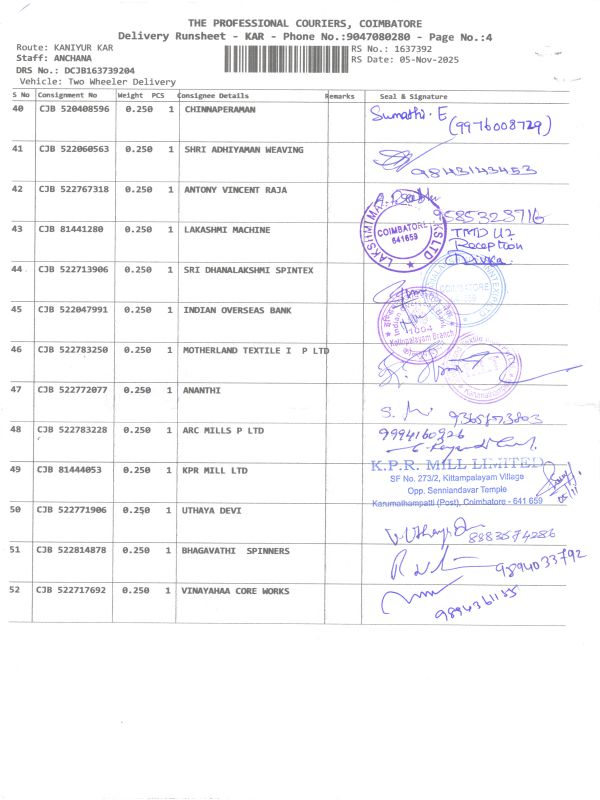 THE PROFESSIONAL COURIERS, COIMBATORE
Delivery Runsheet - KAR - Phone No.:9047080280 - Page No.:4
Route: KANIYUR KAR RS No.: 1637392
Staff: ANCHANA RS Date: 05-Nov-2025
DRS No.: DCJB163739204
Vehicle: Two Wheeler Delivery
S No Consignment No Weight PCS Consignee Details Remarks Seal & Signature
40 CJB 520408596 0.250 1 CHINNAPERAMAN Sumathi. E
(9976008729)
41 CJB 522060563 0.250 1 SHRI ADHIYAMAN WEAVING
9843143453
42 CJB 522767318 0.250 1 ANTONY VINCENT RAJA
9585323716
43 CJB 81441280 0.250 1 LAKASHMI MACHINE
COIMBATORE
641659
TMD U2
Reception
44 CJB 522713906 0.250 1 SRI DHANALAKSHMI SPINTEX
COIMBATORE
45 CJB 522047991 0.250 1 INDIAN OVERSEAS BANK
Indian Overseas Bank
1004
46 CJB 522783250 0.250 1 MOTHERLAND TEXTILE I P LTD
47 CJB 522772077 0.250 1 ANANTHI
48 CJB 522783228 0.250 1 ARC MILLS P LTD
9994160926
49 CJB 81444053 0.250 1 KPR MILL LTD
K.P.R. MILL LIMITED
SF No. 273/2, Kittampalayam Village
Opp. Senniandavar Temple
Karumathampatti (Post), Coimbatore - 641 659
50 CJB 522771906 0.250 1 UTHAYA DEVI
8883574286
51 CJB 522814878 0.250 1 BHAGAVATHI SPINNERS
9894033792
52 CJB 522717692 0.250 1 VINAYAHAA CORE WORKS